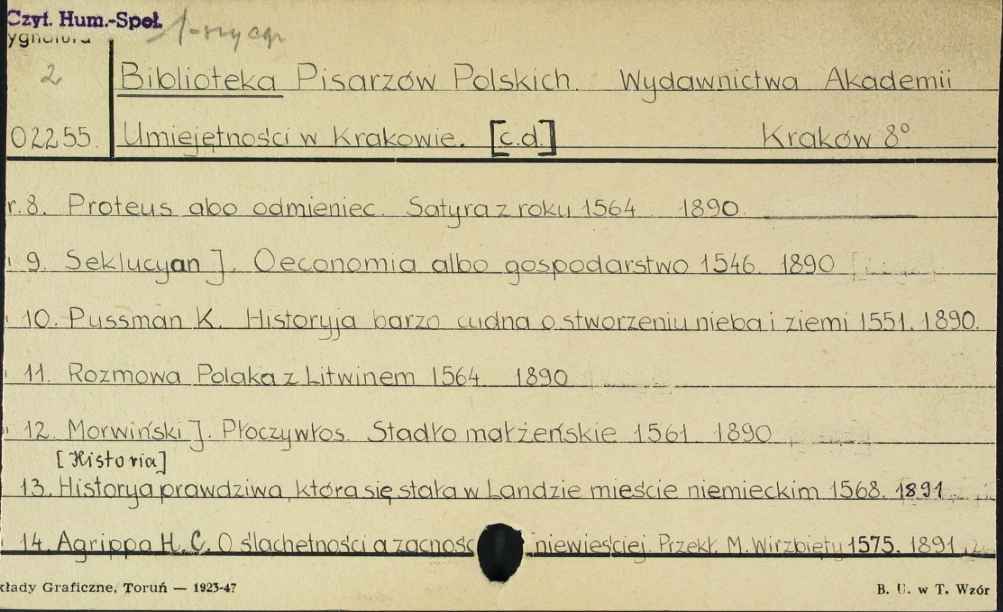 Czyt. Hum.-Społ.
ygnatura
2
Biblioteka Pisarzów Polskich. Wydawnictwa Akademii
02255. Umiejętności w Krakowie. [c.d.] Kraków 8°
r. 8. Proteus abo odmieniec. Satyra z roku 1564 1890
9. Seklucyan J. Oeconomia albo gospodarstwo 1546. 1890
10. Pussman K. Historyja barzo cudna o stworzeniu nieba i ziemi 1551. 1890.
11. Rozmowa Polaka z Litwinem 1564 1890
12. Morwiński J. Płoczywłos. Stadło małżeńskie 1561 1890
[Historia]
13. Historya prawdziwa, która się stała w Landzie mieście niemieckim 1568. 1891
14. Agrippa H. C. O ślachetności a zacnośc niewieściej Przekł. M. Wirzbięty 1575. 1891
kłady Graficzne, Toruń — 1923-47
B. U. w T. Wzór